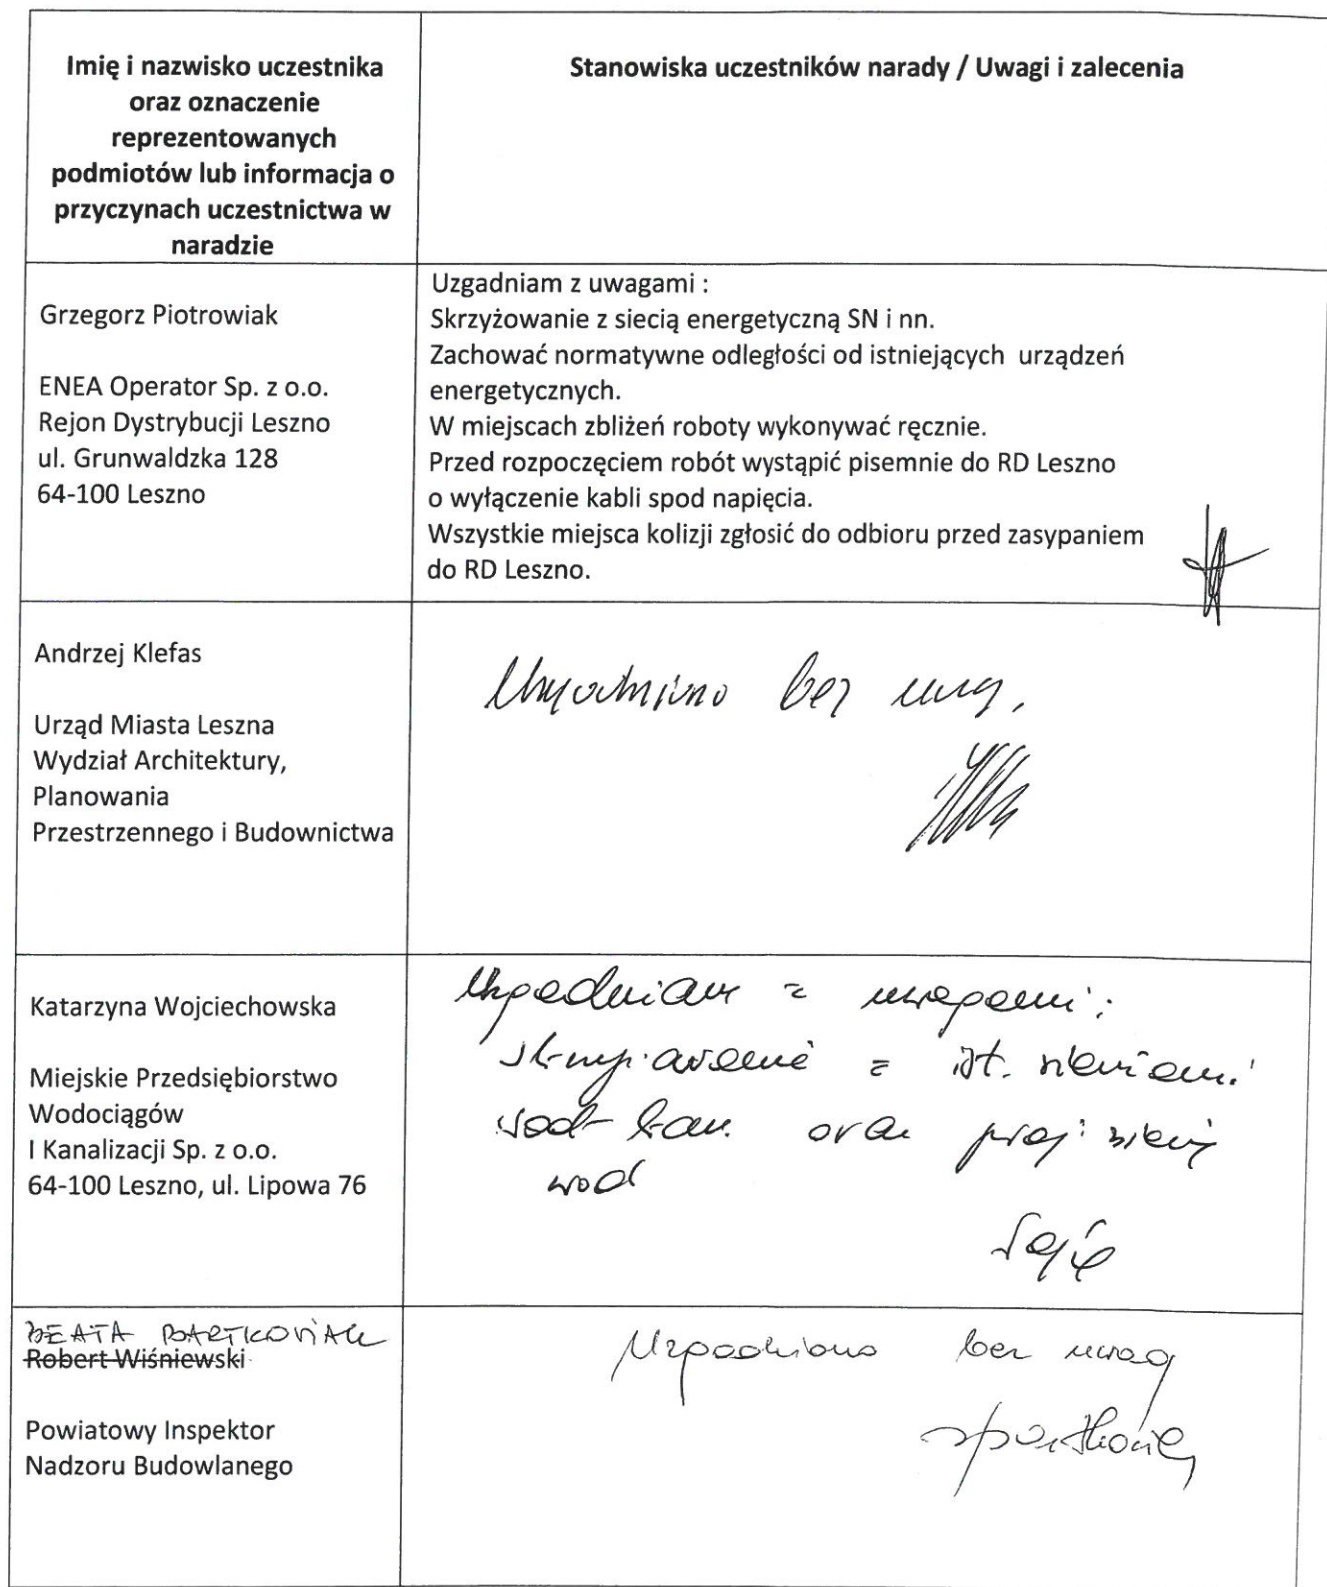 Imię i nazwisko uczestnika
oraz oznaczenie
reprezentowanych
podmiotów lub informacja o
przyczynach uczestnictwa w
naradzie
Stanowiska uczestników narady / Uwagi i zalecenia
Grzegorz Piotrowiak
ENEA Operator Sp. z o.o.
Rejon Dystrybucji Leszno
ul. Grunwaldzka 128
64-100 Leszno
Uzgadniam z uwagami :
Skrzyżowanie z siecią energetyczną SN i nn.
Zachować normatywne odległości od istniejących urządzeń
energetycznych.
W miejscach zbliżeń roboty wykonywać ręcznie.
Przed rozpoczęciem robót wystąpić pisemnie do RD Leszno
o wyłączenie kabli spod napięcia.
Wszystkie miejsca kolizji zgłosić do odbioru przed zasypaniem
do RD Leszno.
Andrzej Klefas
Urząd Miasta Leszna
Wydział Architektury,
Planowania
Przestrzennego i Budownictwa
Uzgodniono bez uwag.
Katarzyna Wojciechowska
Miejskie Przedsiębiorstwo
Wodociągów
I Kanalizacji Sp. z o.o.
64-100 Leszno, ul. Lipowa 76
Uzgadniam z uwagami:
skrzyżowanie z ist. sieciami
wod-kan. oraz proj. siecią
wod
BEATA BARTKOWIAK
Robert Wiśniewski
Powiatowy Inspektor
Nadzoru Budowlanego
Uzgodniono bez uwag